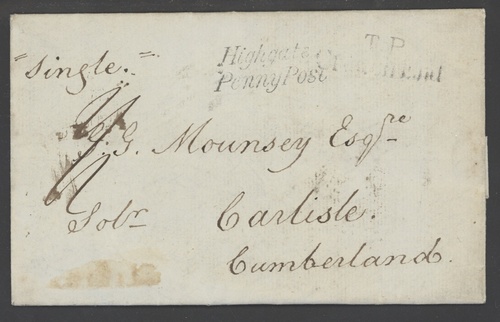 "Single."
Highgate
Penny Post
T.P
G. Mounsey Esqre
Solr
Carlisle.
Cumberland.